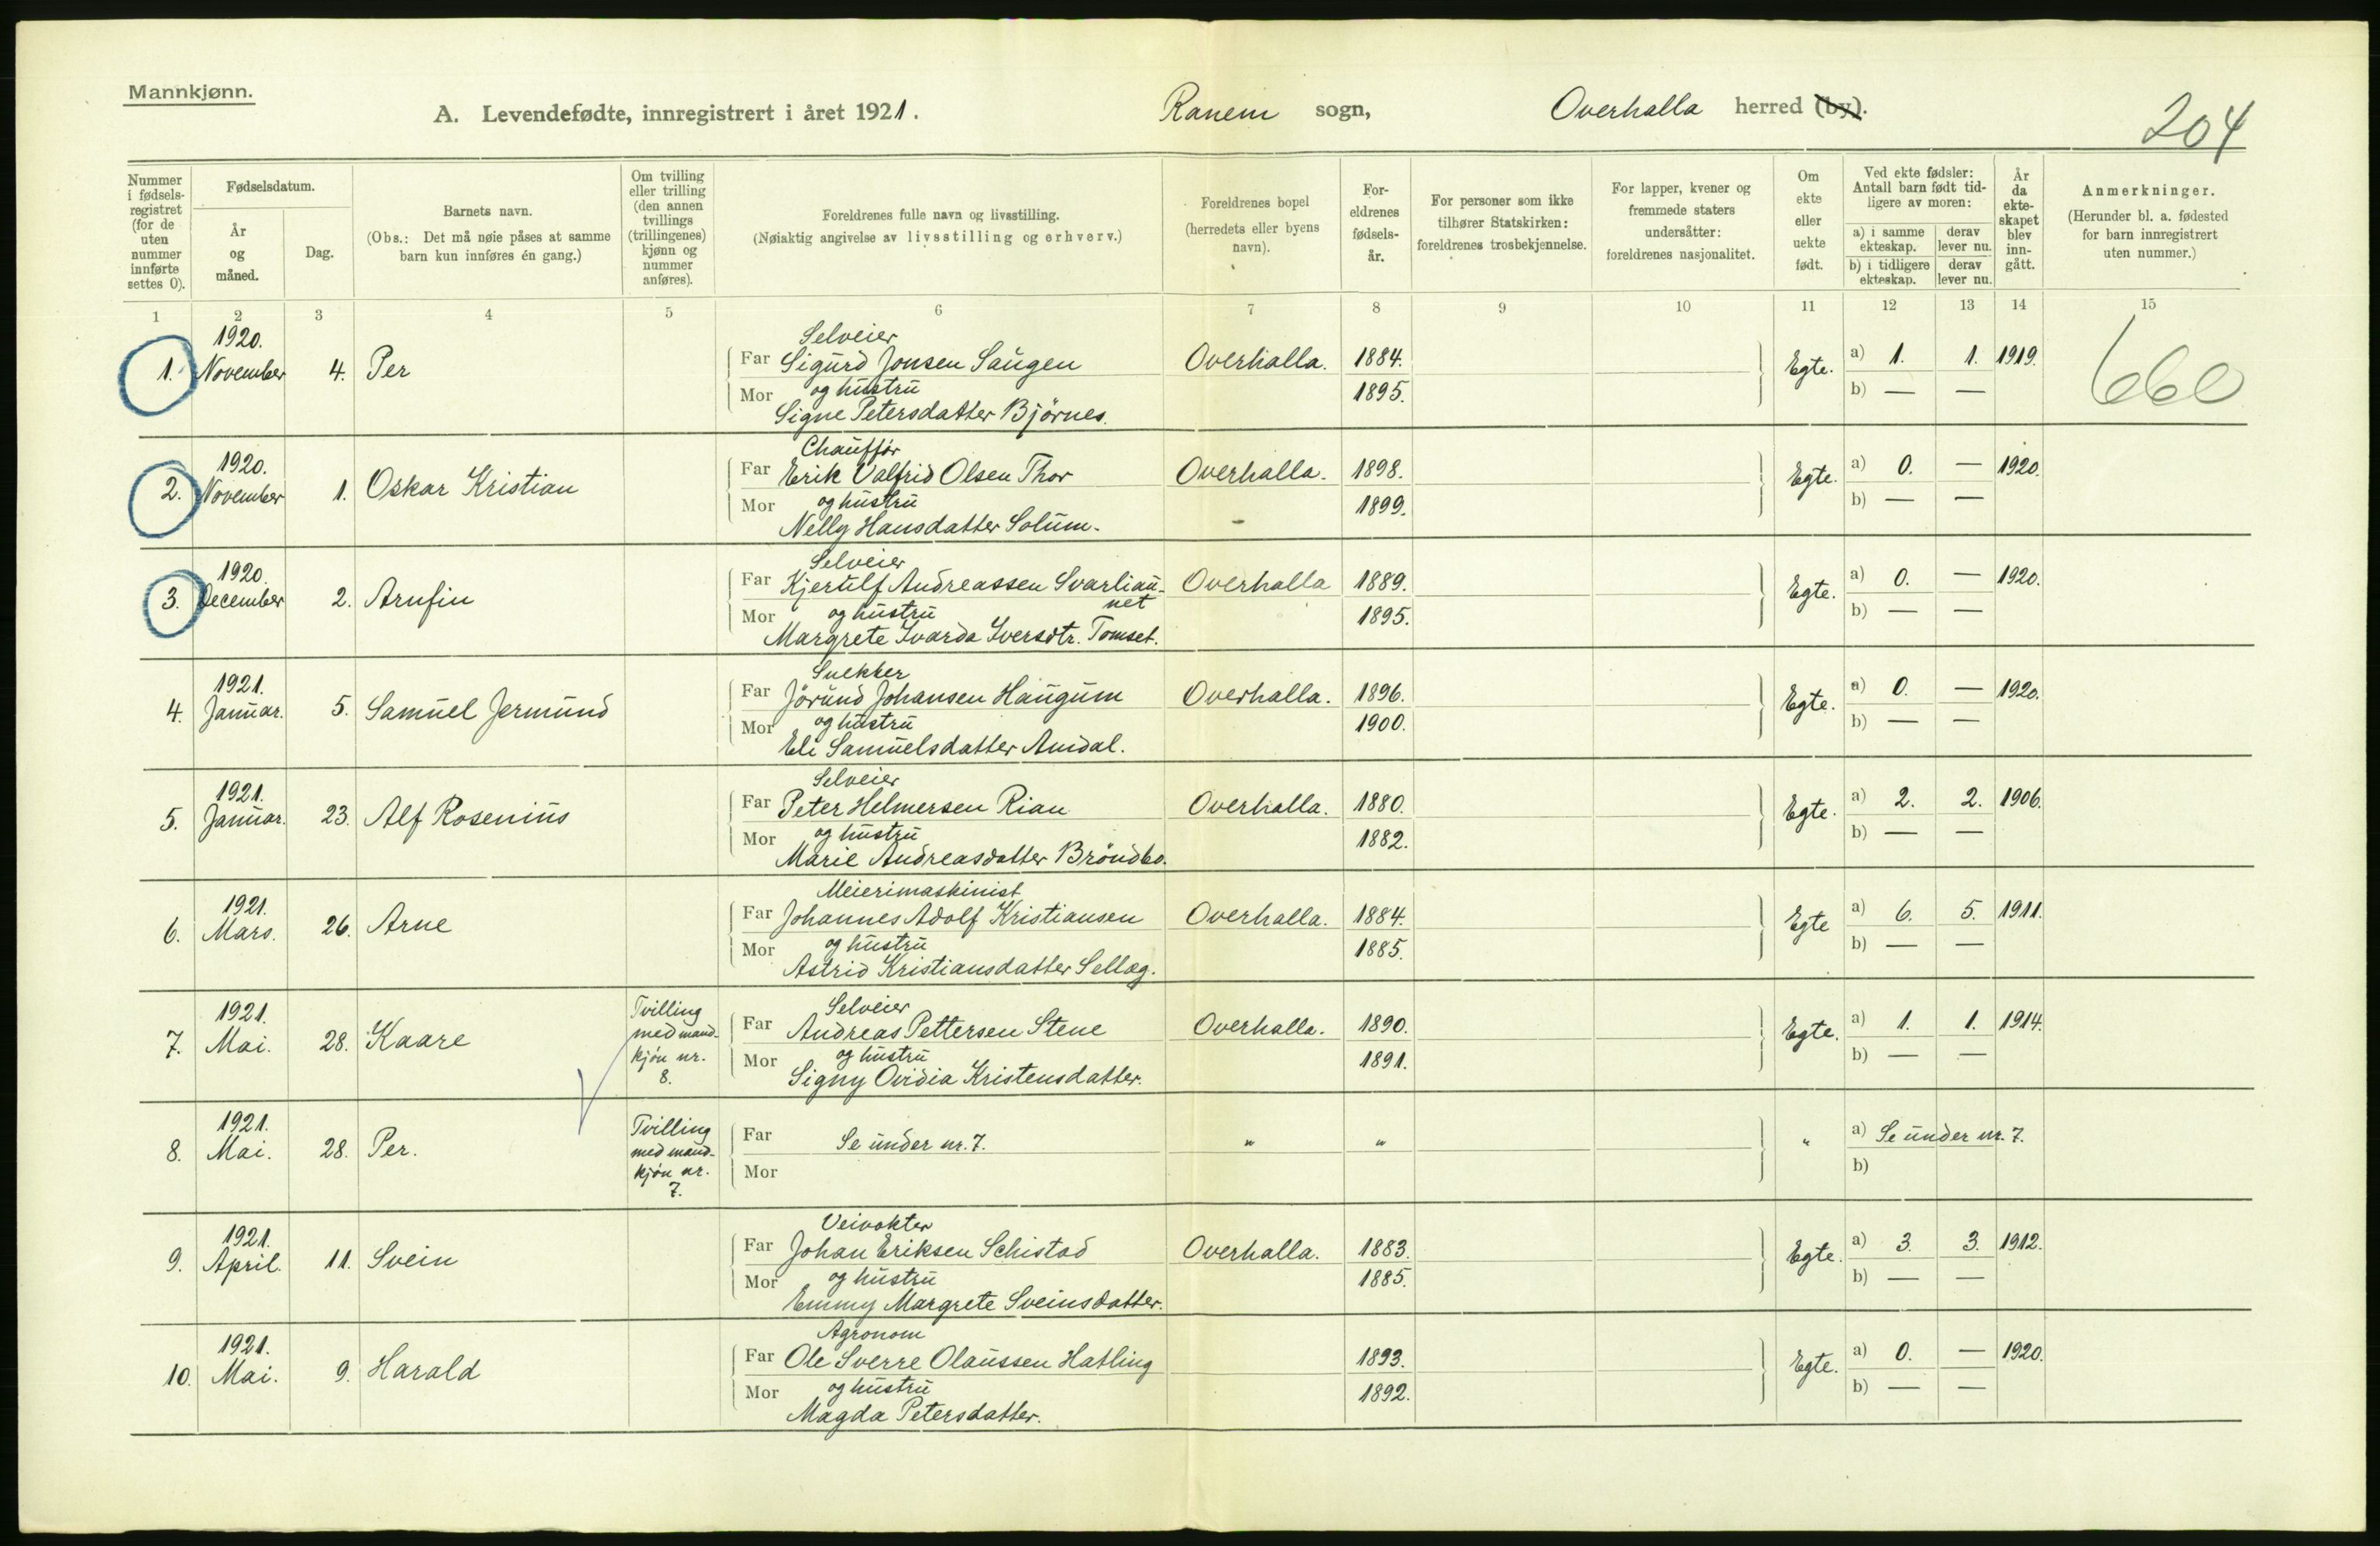 Mannkjønn.
A. Levendefødte, innregistrert i året 1921. Ranem sogn, Overhalla herred (by).
204
Nummer i fødsels-registret (for de uten nummer innførte settes 0).
Fødselsdatum.
År og måned.
Dag.
Barnets navn.
(Obs.: Det må nøie påses at samme barn kun innføres én gang.)
Om tvilling eller trilling (den annen tvillings (trillingenes) kjønn og nummer anføres).
Foreldrenes fulle navn og livsstilling.
(Nøiaktig angivelse av livsstilling og erhverv.)
Foreldrenes bopel (herredets eller byens navn).
For-eldrenes fødsels-år.
For personer som ikke tilhører Statskirken: foreldrenes trosbekjennelse.
For lapper, kvener og fremmede staters undersåtter: foreldrenes nasjonalitet.
Om ekte eller uekte født.
Ved ekte fødsler: Antall barn født tid-ligere av moren:
a) i samme ekteskap. derav lever nu.
b) i tidligere ekteskap. derav lever nu.
År da ekte-skapet blev inn-gått.
Anmerkninger.
(Herunder bl. a. fødested for barn innregistrert uten nummer.)
1 2 3 4 5 6 7 8 9 10 11 12 13 14 15
1920. Selveier
1. November 4. Per Far Sigurd Jonsen Saugen Overhalla. 1884. Egte. a) 1. 1. 1919. 660
Mor og hustru 1895. b) — —
Signe Petersdatter Bjørnes.
1920. Chauffør
2. November 1. Oskar Kristian Far Erik Valfrid Olsen Thor Overhalla. 1898. Egte. a) 0. — 1920.
Mor og hustru 1899. b) — —
Nelly Hansdatter Solum.
1920. Selveier
3. December 2. Arnfin Far Kjerulf Andreassen Svarliau- Overhalla 1889. Egte. a) 0. — 1920.
net
Mor og hustru 1895. b) — —
Margrete Ivarda Iversdtr. Tomset.
1921. Snekker
4. Januar. 5. Samuel Jermund Far Jørund Johansen Haugum Overhalla. 1896. Egte. a) 0. — 1920.
Mor og hustru 1900. b) — —
Eli Samuelsdatter Amdal.
1921. Selveier
5. Januar. 23. Alf Rosenius Far Peter Helmersen Rian Overhalla. 1880. Egte. a) 2. 2. 1906.
Mor og hustru 1882. b) — —
Marie Andreasdatter Brøndbo.
1921. Meierimaskinist
6. Mars. 26. Arne Far Johannes Adolf Kristiansen Overhalla. 1884. Egte a) 6. 5. 1911.
Mor og hustru 1885. b) — —
Astrid Kristiansdatter Sellæg.
1921. Tvilling med mand-kjøn nr. 8. Selveier
7. Mai. 28. Kaare Far Andreas Pettersen Stene Overhalla. 1890. Egte. a) 1. 1. 1914.
Mor og hustru 1891. b) — —
Signy Ovidia Kristensdatter.
1921. Tvilling med mand-kjøn nr. 7.
8. Mai. 28. Per. Far Se under nr. 7. " " " a) Se under nr. 7.
Mor b)
1921. Veivokter
9. April. 11. Svein Far Johan Eriksen Schistad Overhalla. 1883. Egte. a) 3. 3. 1912.
Mor og hustru 1885. b) — —
Emmy Margrete Sveinsdatter.
1921. Agronom
10. Mai. 9. Harald Far Ole Sverre Olaussen Hatling 1893. Egte. a) 0. — 1920.
Mor og hustru 1892. b) — —
Magda Petersdatter.